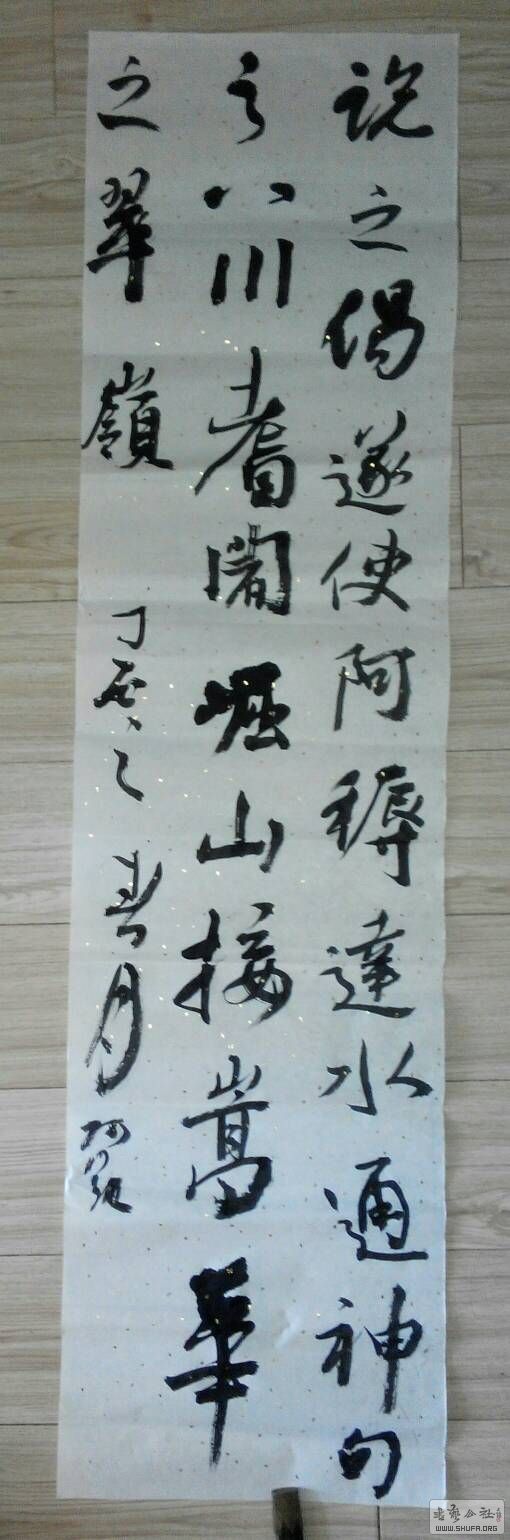 說之偈遂使阿耨達水通神句
之八川耆闍崛山接嵩華
之翠嶺 丁酉之春月
书艺公社
WWW.SHUFA.ORG